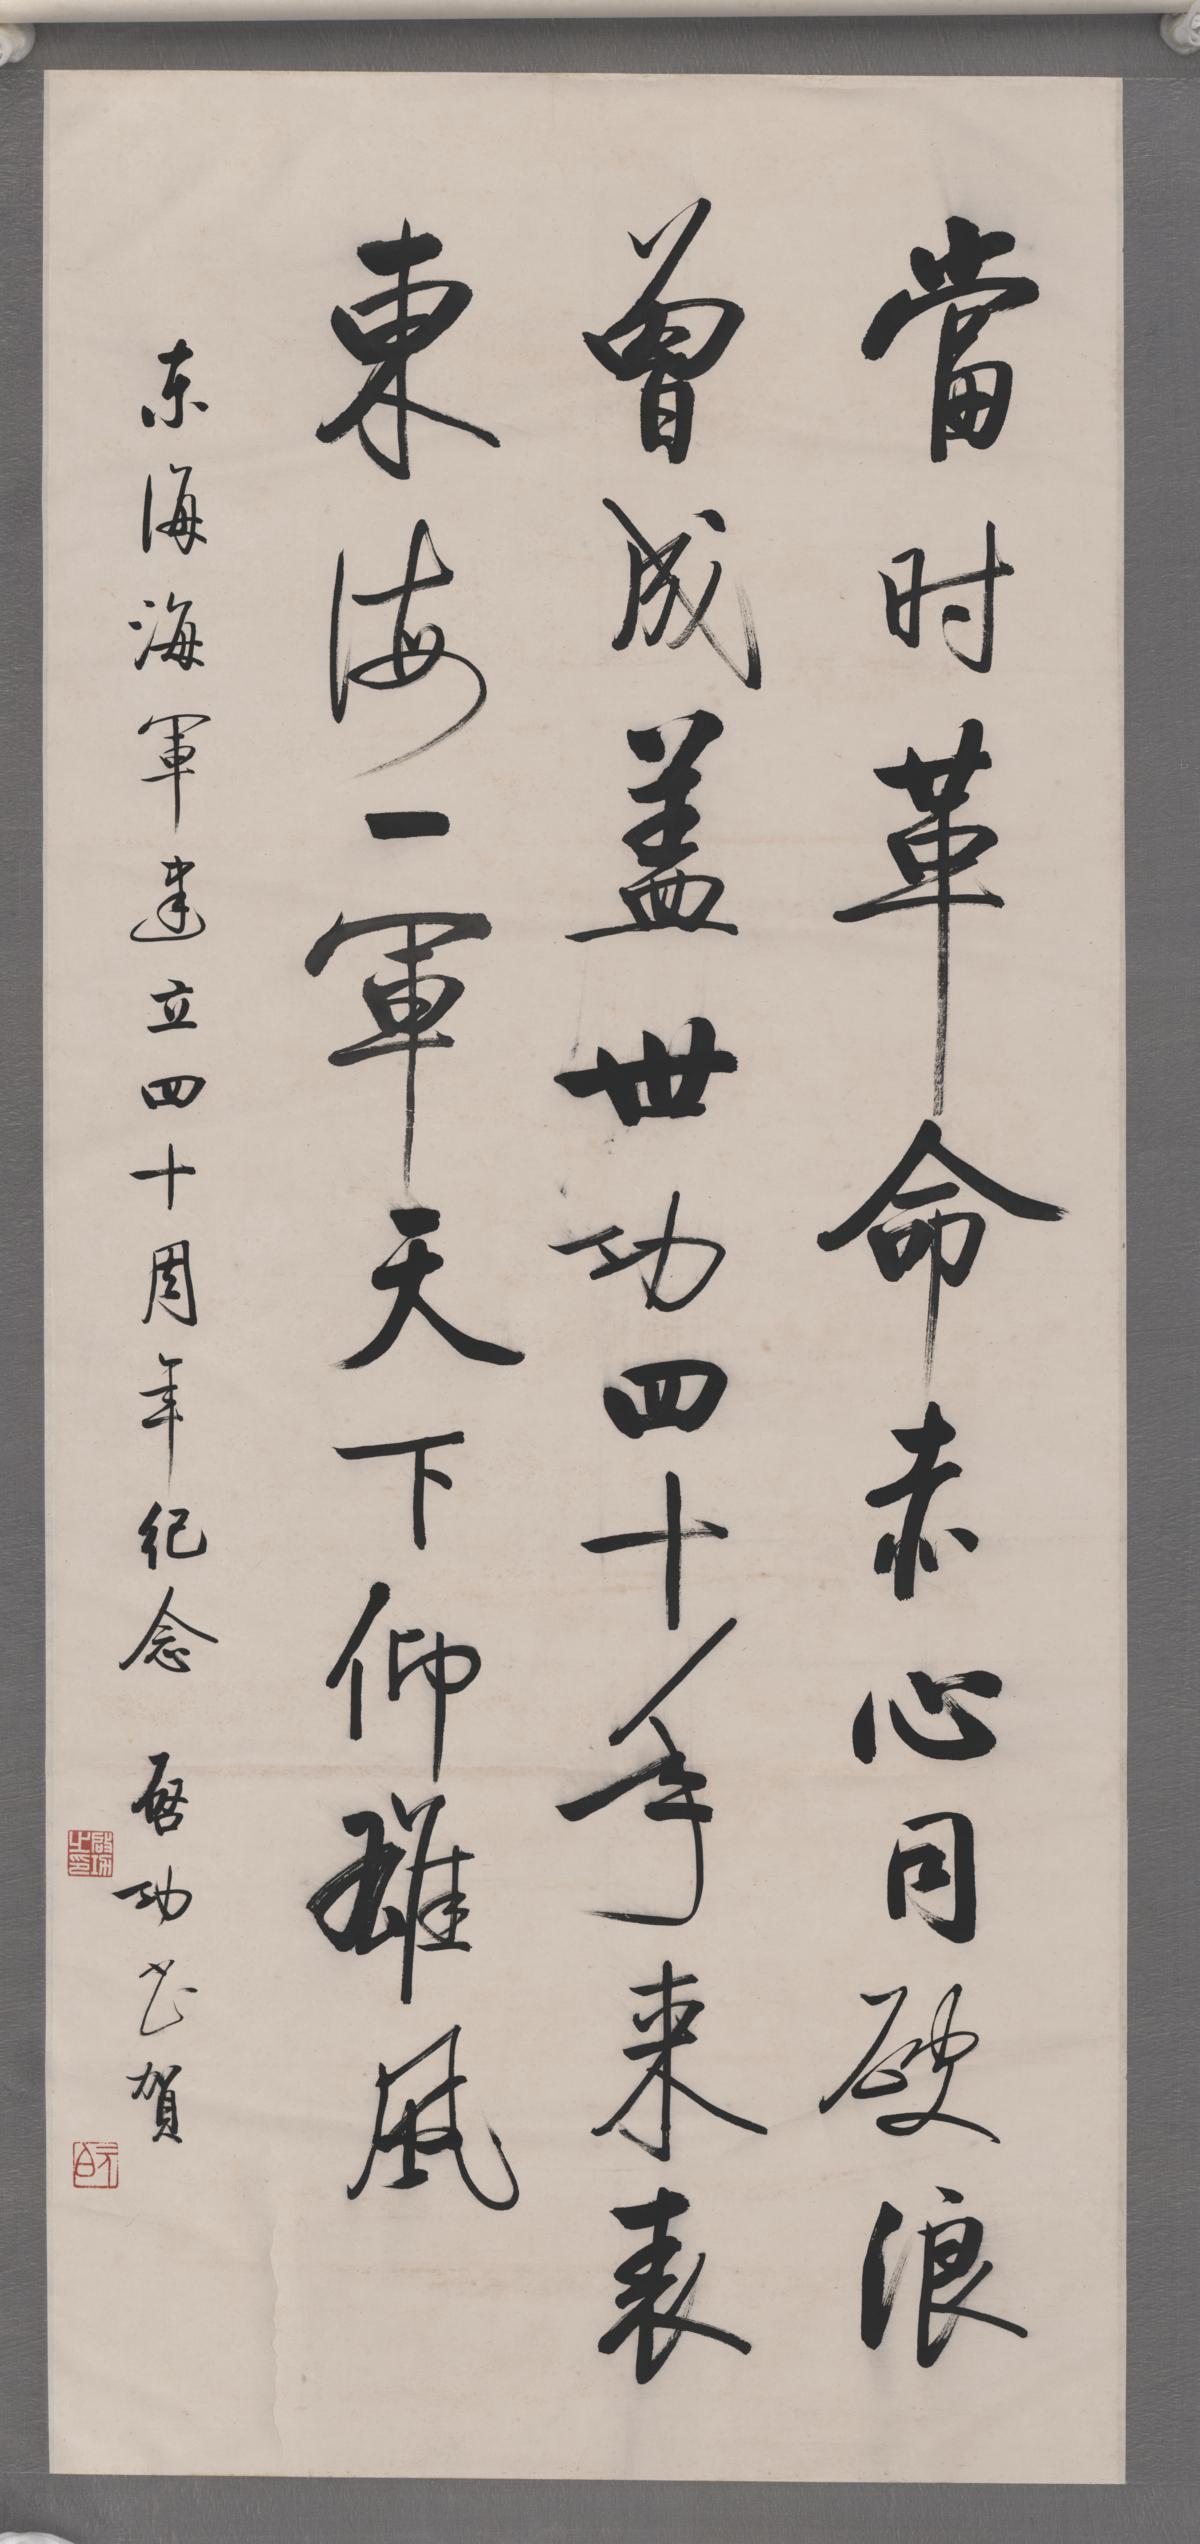 當时革命赤心同破浪
曾成盖世功四十年来表
東海一軍天下仰雄風
东海海軍建立四十周年纪念 啓功书贺
啟功之印
元白